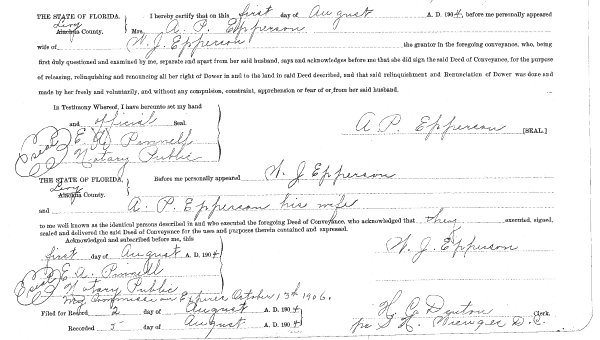 THE STATE OF FLORIDA, } I hereby certify that on this first day of August A. D. 1904, before me personally appeared
Levy
Alachua County. Mrs. A. P. Epperson
wife of W. J. Epperson the grantor in the foregoing conveyance, who, being
first duly questioned and examined by me, separate and apart from her said husband, says and acknowledges before me that she did sign the said Deed of Conveyance, for the purpose
of releasing, relinquishing and renouncing all her right of Dower in and to the land in said Deed described, and that said relinquishment and Renunciation of Dower was done and
made by her freely and voluntarily, and without any compulsion, constraint, apprehension or fear of or from her said husband.
In Testimony Whereof, I have hereunto set my hand
and official Seal.
A. P. Epperson [SEAL.]
(Seal) E. A. Pinnell
Notary Public
THE STATE OF FLORIDA, } Before me personally appeared W. J Epperson
Levy
Alachua County.
and A. P. Epperson his wife
to me well known as the identical persons described in and who executed the foregoing Deed of Conveyance, who acknowledged that they executed, signed,
sealed and delivered the said Deed of Conveyance for the uses and purposes therein contained and expressed.
Acknowledged and subscribed before me, this
first day of August A. D. 1904
W. J. Epperson
(Seal) E. A. Pinnell
Notary Public
My Commission Expires October 13th 1906.
Filed for Record 2 day of August A. D. 1904
H. C. Denton Clerk.
Recorded 5 day of August A. D. 1904
D. C.